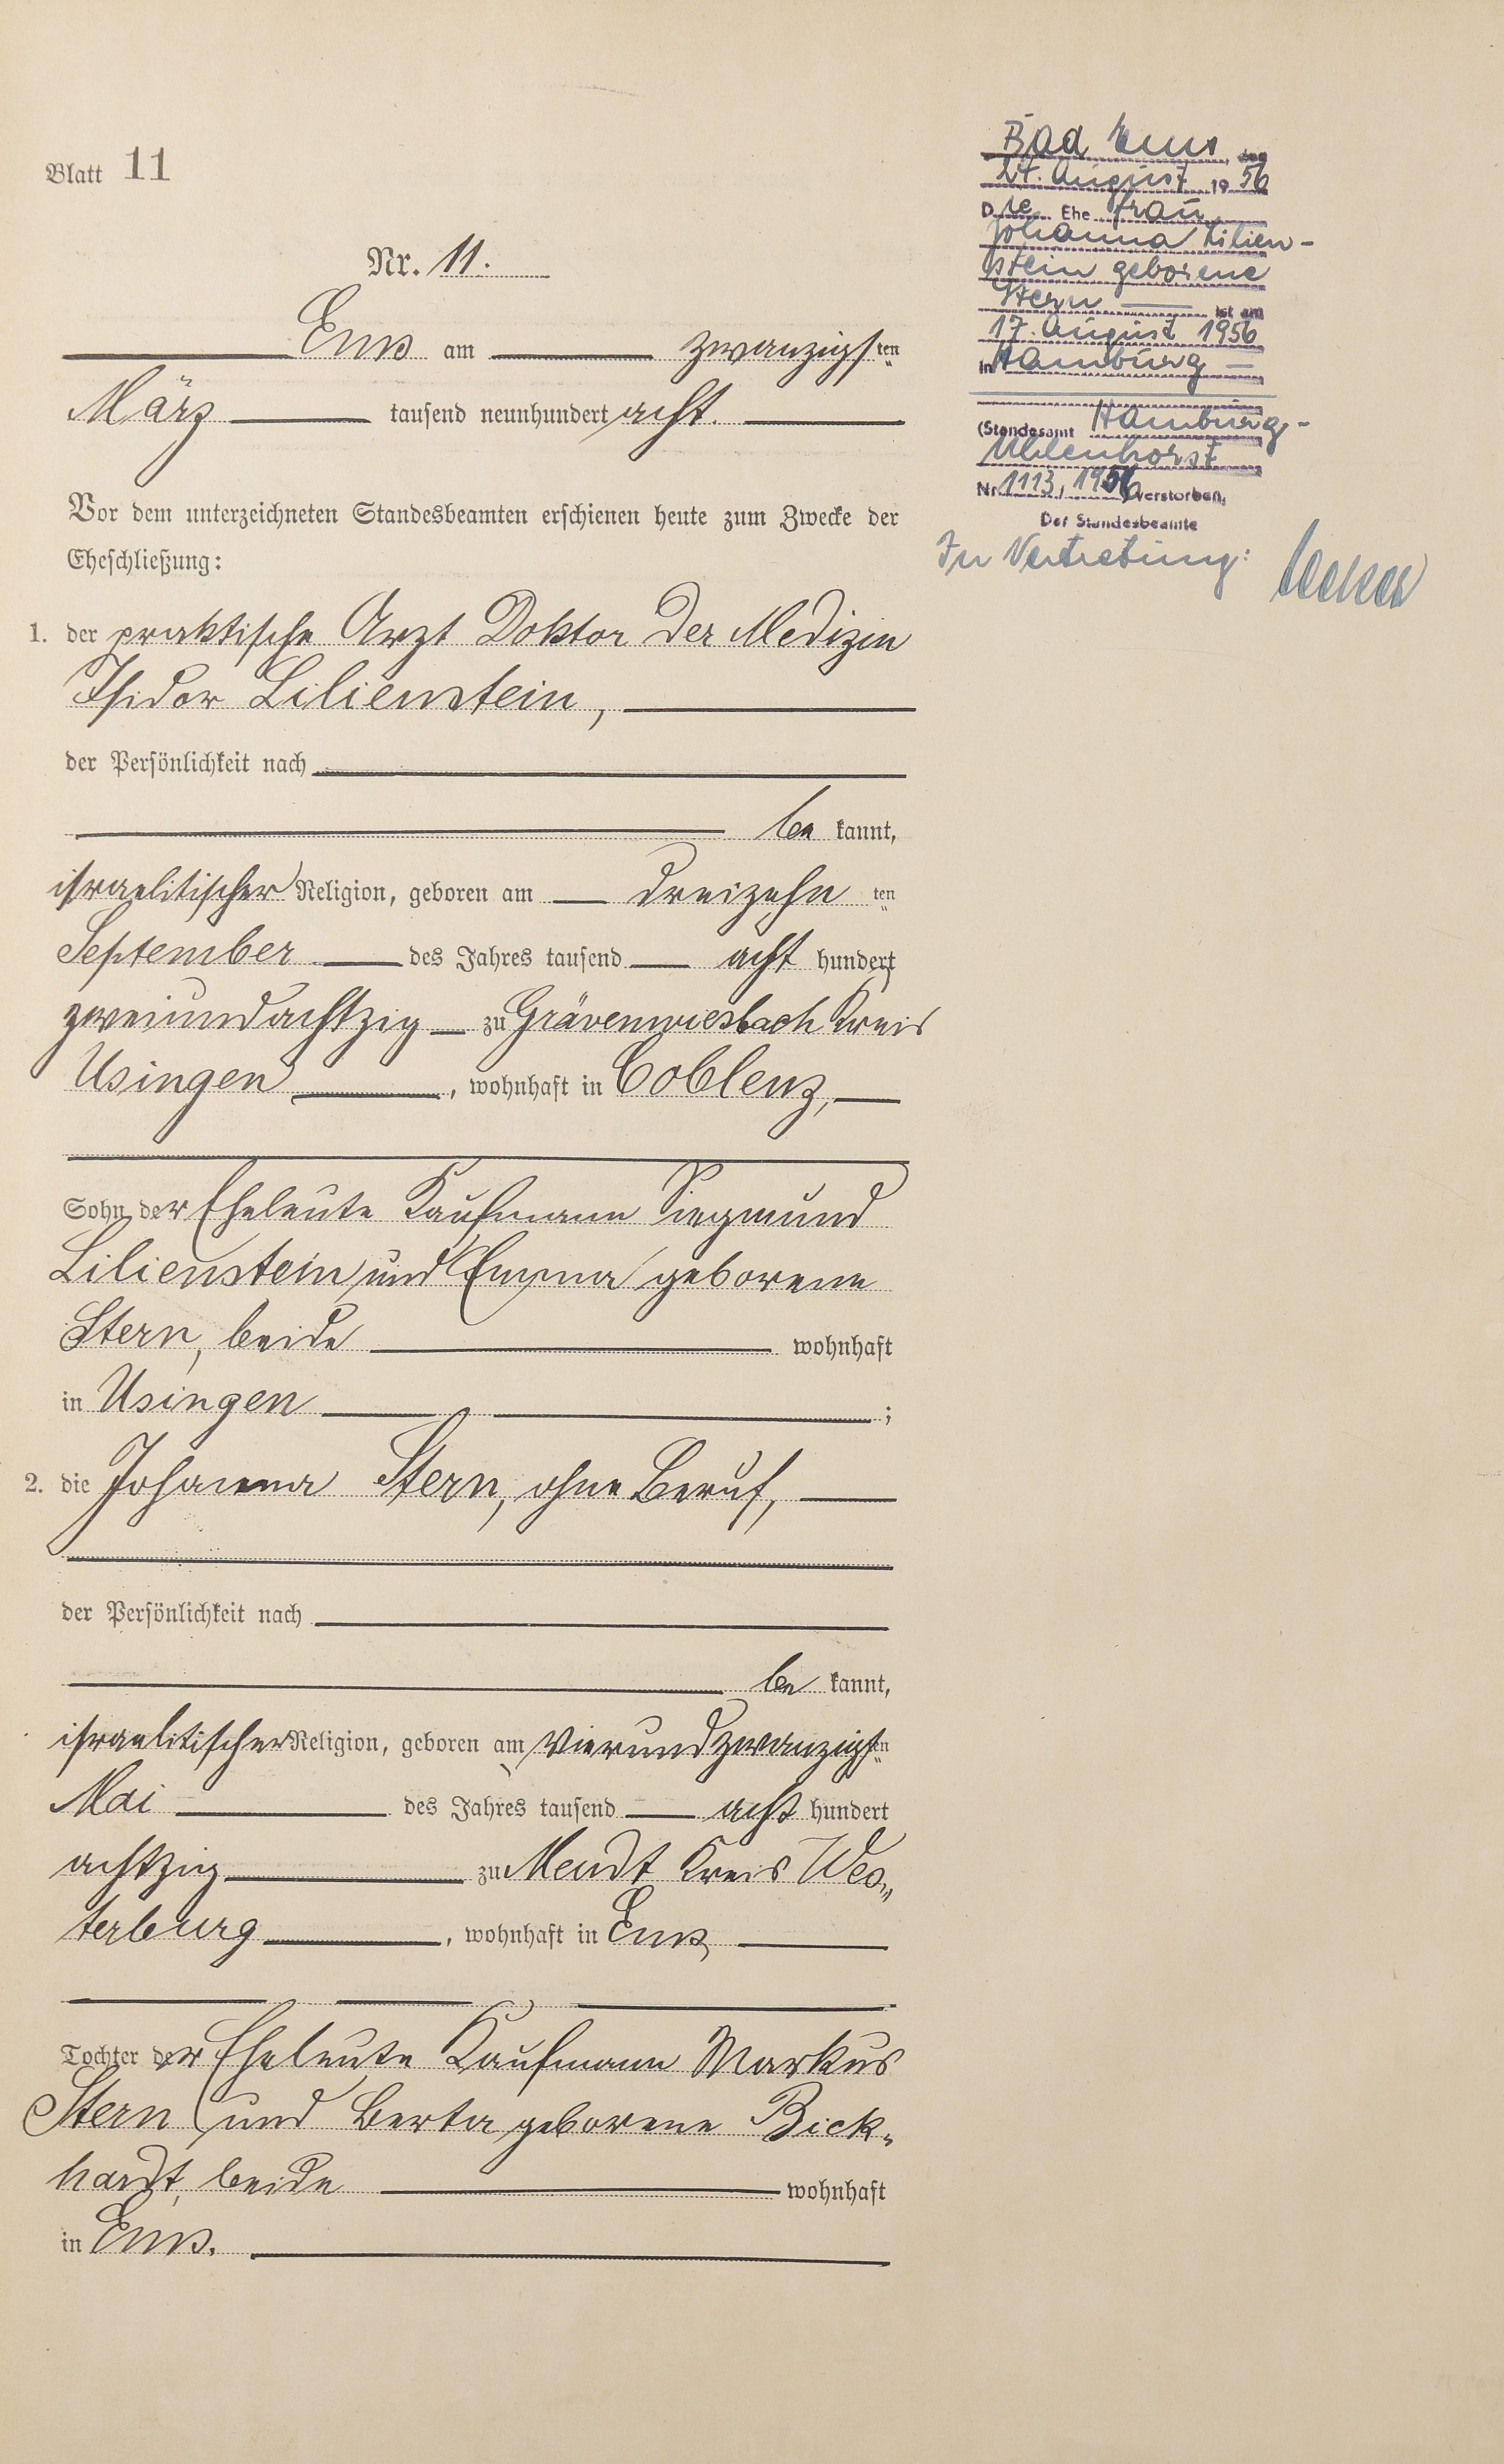 Blatt 11
Nr. 11.
Ems am zwanzigsten
März tausend neunhundert acht.
Vor dem unterzeichneten Standesbeamten erschienen heute zum Zwecke der
Eheschließung:
1. der praktische Arzt Doktor der Medizin
Isidor Lilienstein,
der Persönlichkeit nach
be kannt,
israelitischer Religion, geboren am dreizehn ten
September des Jahres tausend acht hundert
zweiundachtzig zu Grävenwiesbach Kreis
Usingen, wohnhaft in Coblenz,
Sohn der Eheleute Kaufmann Siegmund
Lilienstein und Emma geborene
Stern, beide wohnhaft
in Usingen ;
2. die Johanna Stern, ohne Beruf,
der Persönlichkeit nach
be kannt,
israelitischer Religion, geboren am vierundzwanzigsten
Mai des Jahres tausend acht hundert
achtzig zu Meudt Kreis Wes„
terburg, wohnhaft in Ems,
Tochter der Eheleute Kaufmann Markus
Stern und Berta geborene Bick„
hardt, beide wohnhaft
in Ems.
Bad Ems, den
24. August 1956
Die Ehe frau
Johanna Lilien-
stein geborene
Stern ist am
17. August 1956
in Hamburg
(Standesamt Hamburg-
Uhlenhorst
Nr. 1113/1956 verstorben.
Der Standesbeamte
In Vertretung: